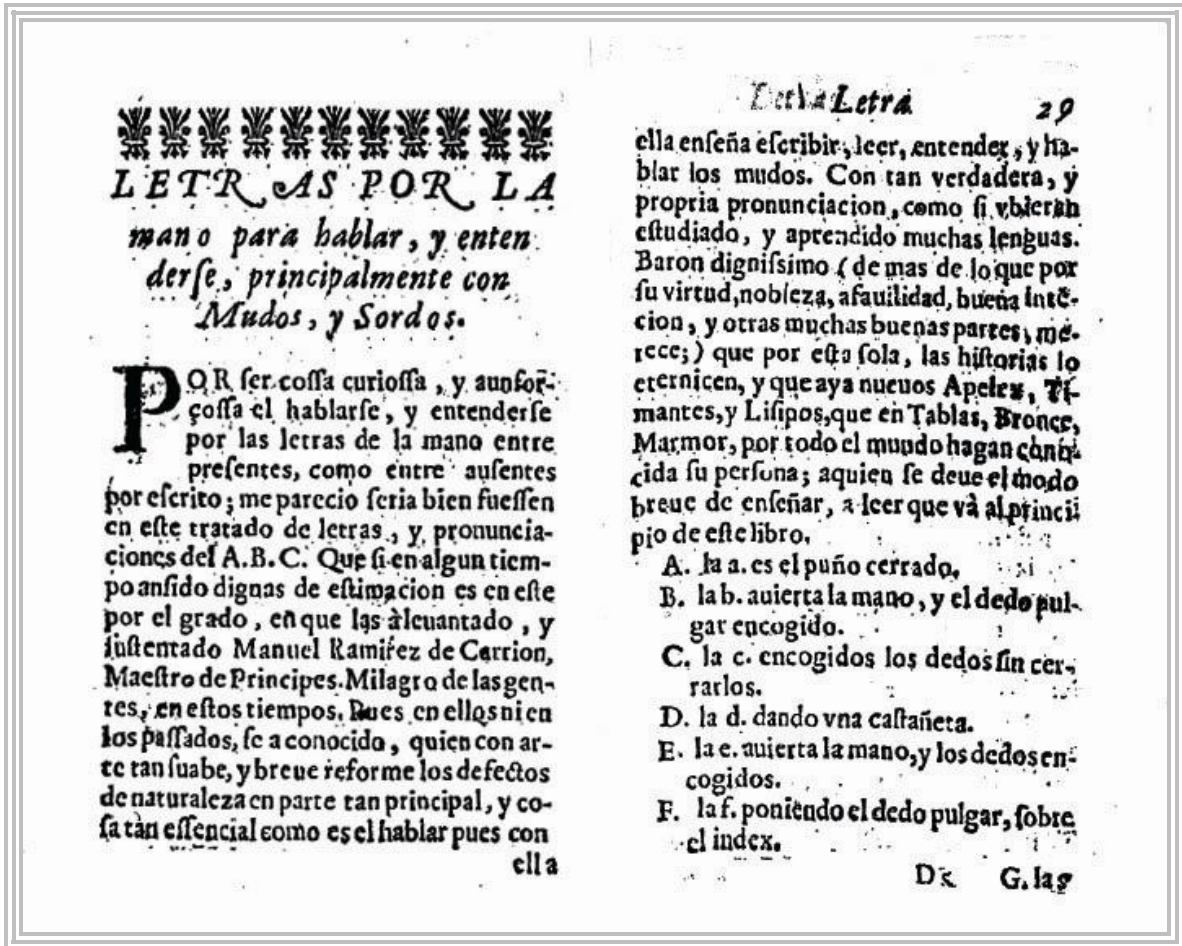 LETRAS POR LA
mano para hablar, y enten
derſe, principalmente con
Mudos, y Sordos.
POR ſer coſſa curioſſa, y aunfor-
çoſſa el hablarſe, y entenderſe
por las letras de la mano entre
preſentes, como entre auſentes
por eſcrito; me pareciò ſeria bien fueſſen
en eſte tratado de letras, y pronuncia-
ciones del A.B.C. Que ſi en algun tiem-
po anſido dignas de eſtimacion es en eſte
por el grado, en que las àleuantado, y
ſuſtentado Manuel Ramirez de Carrion,
Maeſtro de Principes. Milagro de las gen-
tes, en eſtos tiempos. Pues en ellos ni en
los paſſados, ſe a conocido, quien con ar-
te tan ſuabe, y breue reforme los defectos
de naturaleza en parte tan principal, y co-
ſa tàn eſſencial como es el hablar pues con
ella
Letra 29
ella enſeña eſcribir, leer, entender, y ha-
blar los mudos. Con tan verdadera, y
propria pronunciacion, como ſi vbieran
eſtudiado, y aprendido muchas lenguas.
Baron digniſsimo (de mas de lo que por
ſu virtud, nobleza, afauilidad, buena intē-
cion, y otras muchas buenas partes, me-
rece;) que por eſta ſola, las hiſtorias lo
eternicen, y que aya nueuos Apeles, Ti-
mantes, y Liſipos, que en Tablas, Bronce,
Marmor, por todo el mundo hagan
cida ſu perſona; aquien ſe deue el modo
breue de enſeñar, a leer que và al princi
pio de eſte libro.
A. la a. es el puño cerrado.
B. la b. auierta la mano, y el dedo pul-
gar encogido.
C. la c. encogidos los dedos ſin cer-
rarlos.
D. la d. dando vna caſtañeta.
E. la e. auierta la mano, y los dedos en-
cogidos.
F. la f. poniendo el dedo pulgar, ſobre
el index.
G. la g